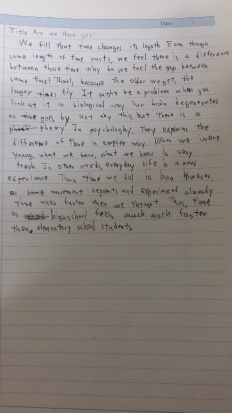 Title Are we there yet?
We fill that time changes its length Even though
some length of time exists, we feel there is a difference
between those time. Why do we feel the gap between
same time? That's because the older we get, the
longer times fly. It might be a problem when you
look at it in biological way. Our brain degenerates
as time goes by. Not only this but there is a
theory. In psychology, They explains the
difference of time in simpler way. When we were
young, what we saw, what we hear is very
fresh. In other words, everyday life is a new
experience. Thus time we fill is long. However,
as same movement repeats and experienced already
time ticks faster then we thought. Thus, time
as highschool feels much much faster
than elementary school students